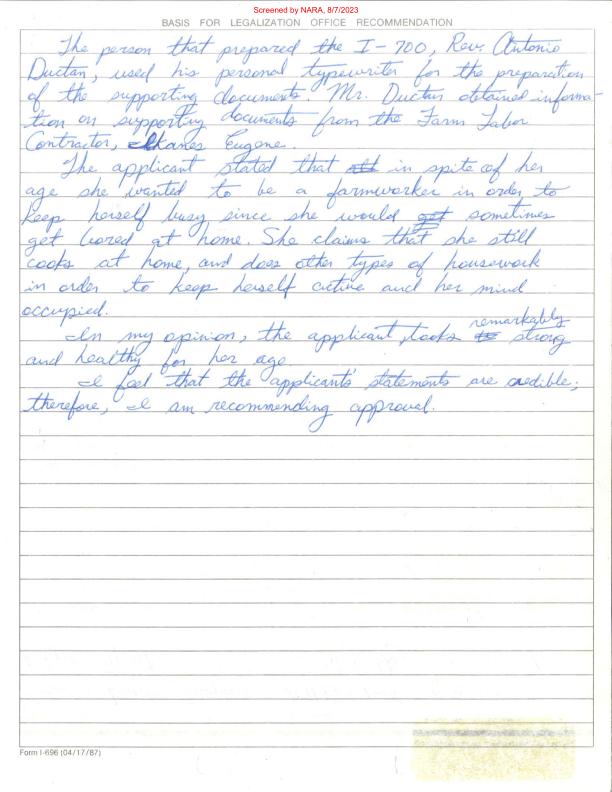 Screened by NARA, 8/7/2023
BASIS FOR LEGALIZATION OFFICE RECOMMENDATION
The person that prepared the I-700, Rev. Antonio
Ductan, used his personal typewriter for the preparation
of the supporting documents. Mr. Ductan obtained informa-
tion on supporting documents from the Farm Labor
Contractor, Elkanes Eugene.
The applicant stated that in spite of her
age she wanted to be a farmworker in order to
keep herself busy since she would get sometimes
get bored at home. She claims that she still
cooks at home, and does other types of housework
in order to keep herself active and her mind
occupied.
In my opinion, the applicant, looks remarkably strong
and healthy for her age
I feel that the applicant's statements are credible;
therefore, I am recommending approval.
Form I-696 (04/17/87)